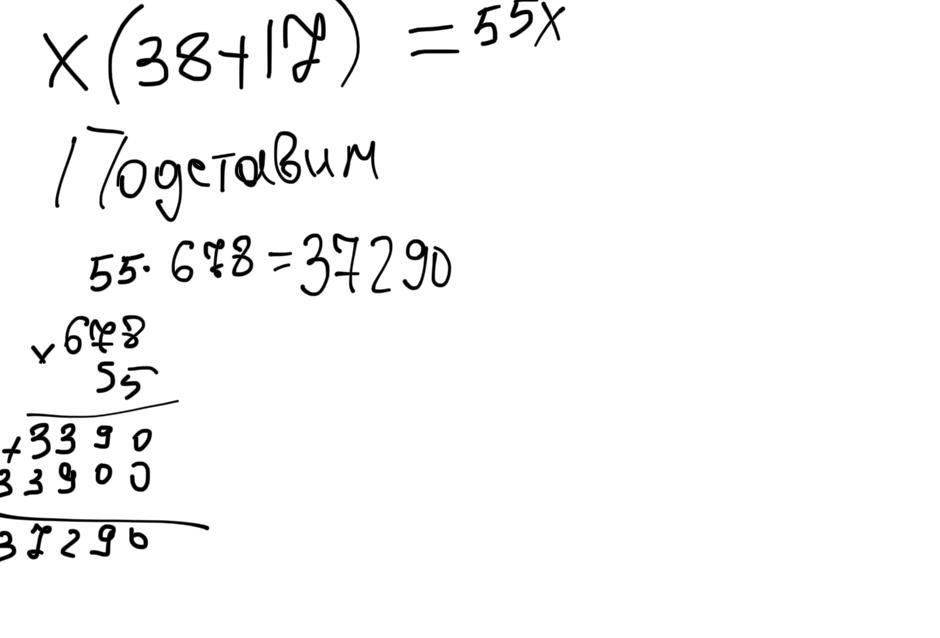 x(38+17) = 55x
Подставим
55·678=37290
×678
55
+3390
33900
37290